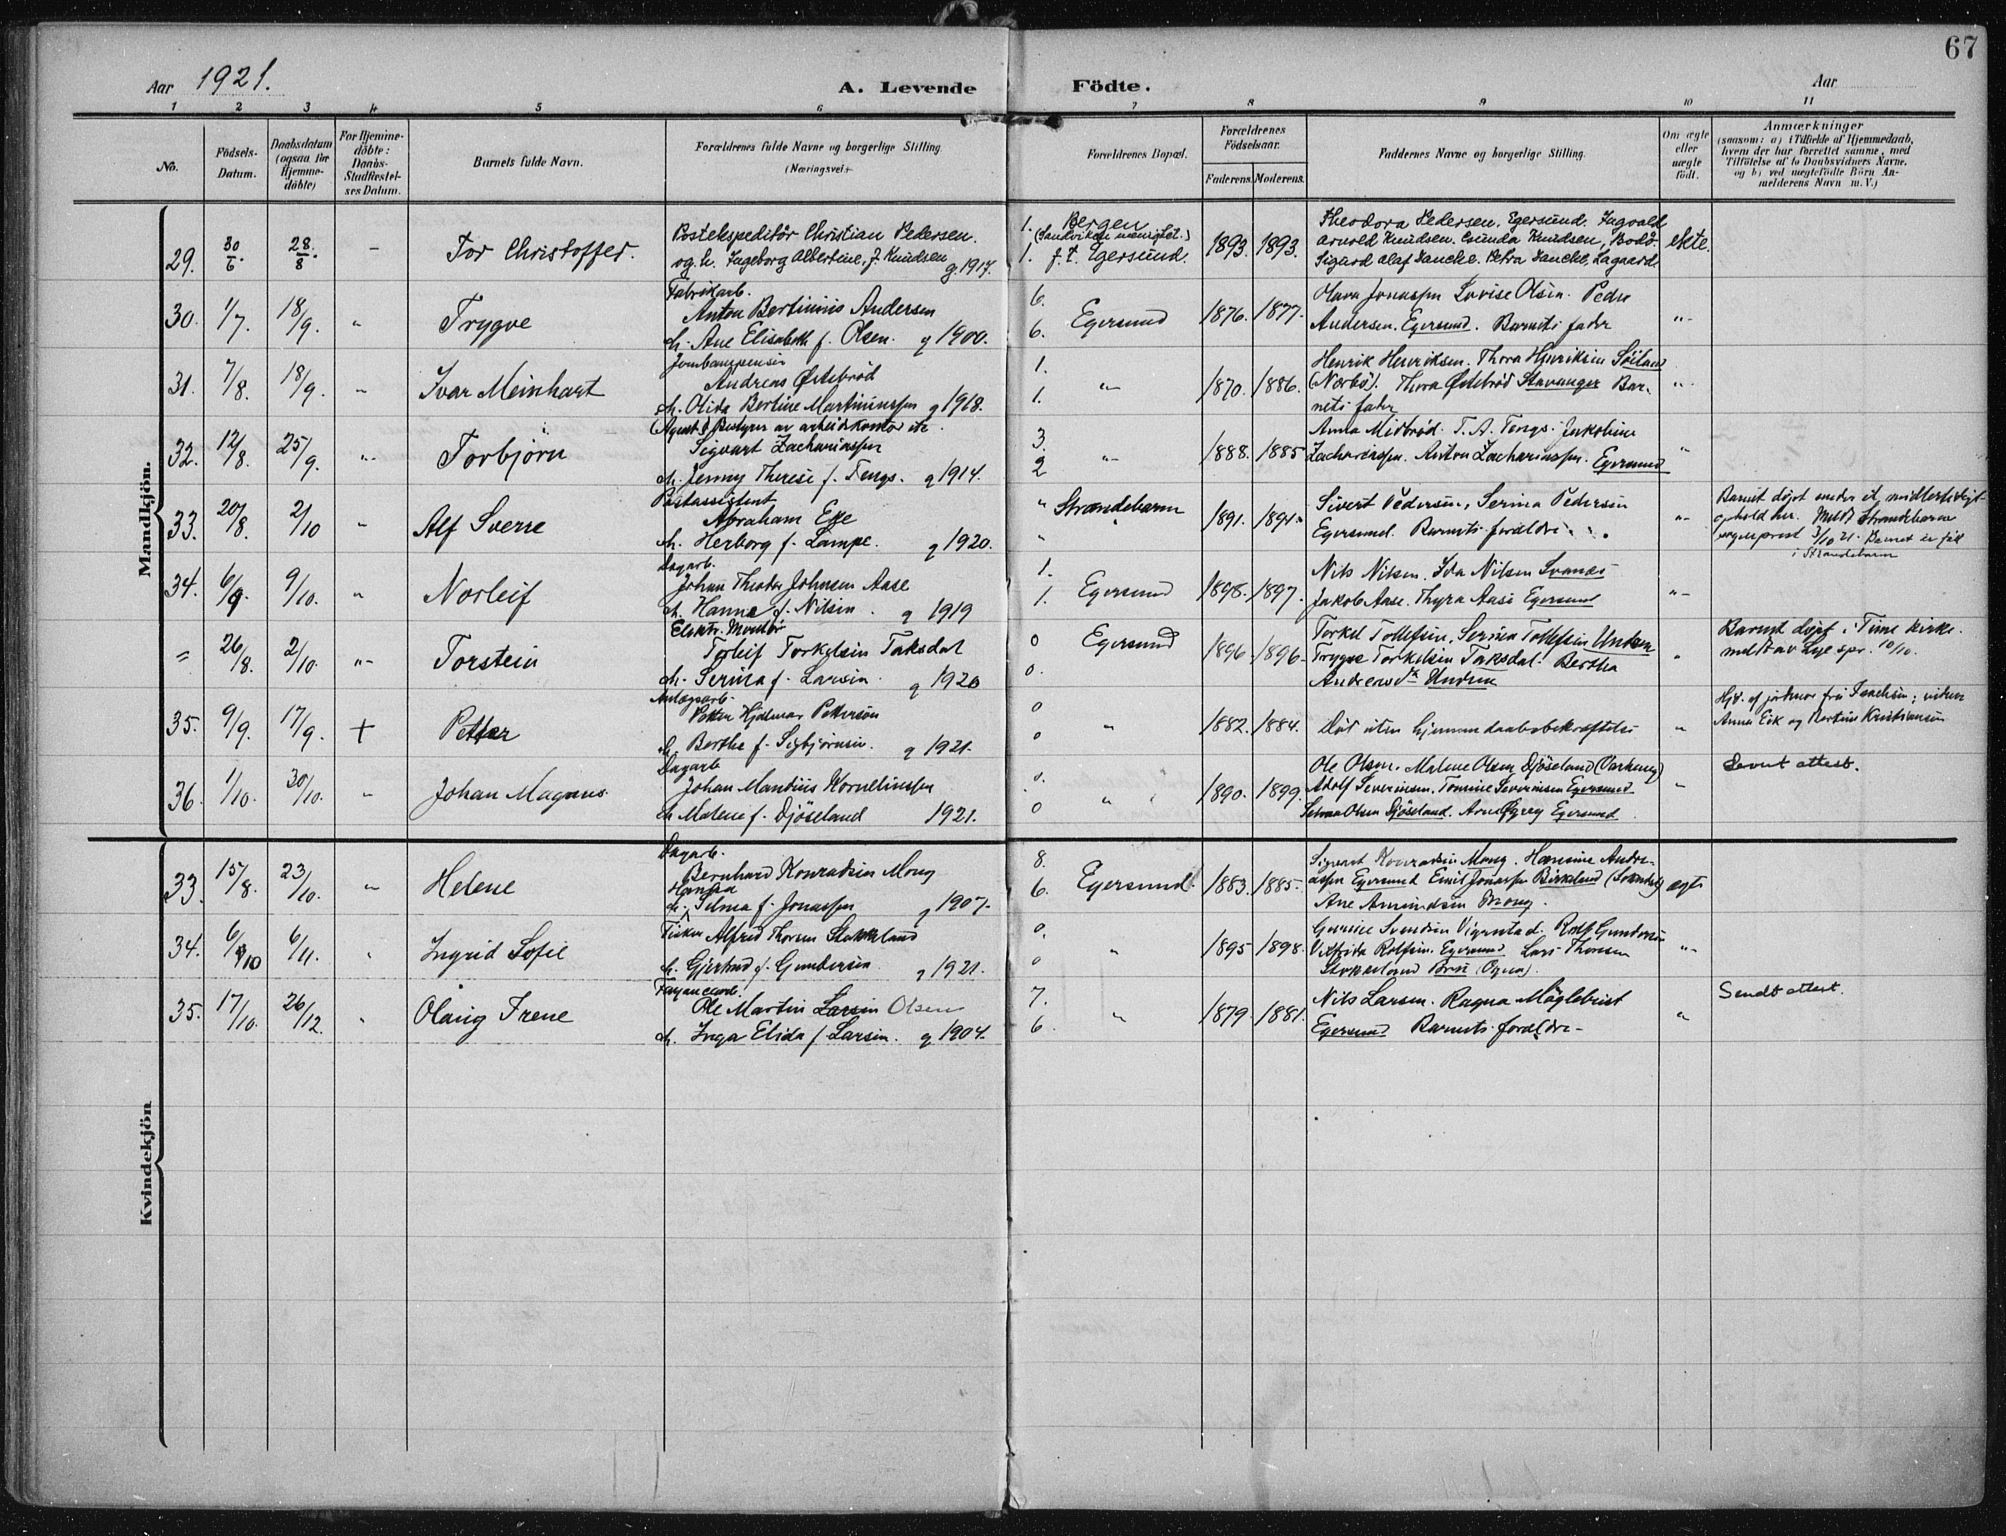 67
Aar 1921.
A. Levende Födte.
Aar
1 2 3 4 5 6 7 8 9 10 11
No.
Födsels-
Datum.
Daabsdatum
(ogsaa för
Hjemme-
döbte)
For Hjemme-
döbte:
Daabs-
Stadfæstel-
ses Datum.
Barnets fulde Navn.
Forældrenes fulde Navne og borgerlige Stilling
(Næringsvei.)
Forældrenes Bopæl.
Forældrenes
Födselsaar.
Faderens. Moderens.
Faddernes Navne og borgerlige Stilling.
Om ægte
eller
uægte
födt.
Anmærkninger
(saasom: a) i Tilfælde af Hjemmedaab,
hvem der har forrettet samme, med
Tilföielse af to Daabsvidners Navne.
og b) ved uægtefödte Börn An-
melderens Navn m. V.)
Mandkjön.
29. 30/6. 28/8. – Tor Christoffer.
Postekspeditör Christian Pedersen.
og h. Ingeborg Albertine, f. Knudsen g 1917.
1. Bergen
1. f. t. Egersund.
1893. 1893.
Theodora Pedersen. Egersund. Ingvald
Arnold Knudsen. Gunda Knudsen, Bodö.
Sigurd Olaf Hancke. Petra Hancke, Lagaard.
ekte.
30. 1/7. 18/9. " Trygve
Fabrikarb.
Anton Bertinius Andersen
h. Ane Elisabeth f. Olsen. g 1900.
6.
6. Egersund
1876. 1877.
Olava Jonassen Lovise Olsen. Peder
Andersen. Egersund. Barnets fader
"-
31. 7/8. 18/9. " Ivar Meinhart
Andreas Østebrød
h. Olida Bertine Martinussen g 1918.
1.
1. "-
1870. 1886.
Henrik Henriksen. Thora Henriksen Söiland
(Nærbö). Thora Østebrød Stavanger Bar-
nets fader
"-
32. 12/8. 25/9. "- Torbjörn
(Agent) Bestyrer av arbeidskontor etc.
Sigvart Zachariassen
h. Jenny Therese f. Tengs. g 1914.
3.
2 "-
1888. 1885
Anna Midbröd. T. A. Tengs. Jakobine
Zachariassen. Anton Zachariassen. Egersund
"
33. 20/8. 2/10 " Alf Sverre
Postassistent
Abraham Ege
h. Herborg f. Lampe. g 1920.
" Strandebarm
"
1891. 1891.
Sivert Pedersen, Serina Pedersen
Egersund. Barnets foreldre
"-
Barnet döpt under et midlertidigt
ophold her. Meldt Strandebarm
sogneprest 3/10 21. Barnet er föd
i Strandebarm
34. 6/9. 9/10. " Norleif
Dagarb.
Johan Theodor Johnsen Aase
h. Hanne f. Nilsen. g 1919
1.
1. Egersund
1898. 1897.
Nils Nilsen. Ida Nilsen Svanes
Jakob Aase. Thyra Aase Egersund
"-
= 26/8. 2/10. "- Torstein
Elektr. Montör
Torleif Torkelsen Taksdal
h. Serina f. Larsen. g 1920
0
0. Egersund
1896. 1896.
Torkel Tollefsen, Serina Tollefsen Undem
Trygve Torkelsen Taksdal. Bertha
Andreasdtr Undem
"
Barnet döpt i Time kirke.
meldt av Lye spr. 10/10.
35. 9/9. 17/9. + Petter
Anlægsarb.
Petter Hjalmar Pettersen
h. Berthe f. Sigbjörnsen. g 1921.
0
0 "
1882. 1884.
Död uten hjemmedaabsbekræftelse
"
Hjd. af jordmor frk Joachim; vidner
Anna Eik og Bertine Kristiansen
36. 1/10. 30/10. " Johan Magnus
Dagarb.
Johan Mandius Kornelinssen
h. Malene f. Djöseland 1921.
0.
0 "
1890. 1899.
Ole Olsen. Malene Olsen Djöseland (Varhaug)
Adolf Severinsen. Tomine Severinsen Egersund
Selma Olsen Djöseland. Arne Ögrey Egersund
"
Sendt attest.
Kvindekjön
33. 15/8. 23/10. " Helene
Dagarb.
Bernhard Konradsen Mong
h. Hansa Selma f. Jonassen g 1907.
8.
6. Egersund
1883. 1885.
Sigvart Konradsen Mong. Hansine Andre-
assen Egersund Emil Jonassen Birkeland (Sokndal)
Ane Amundsen Mong.
egte
34. 6/10 6/11. " Ingrid Sofie
Fisker Alfred Thorsen Stokkeland
h. Gjertrud f. Gundersen. g 1921.
0.
0 "
1895 1898.
Gurine Svendsen Vigrestad. Rolf Gundersen
Vilfrida Rolfsen. Egersund Lars Thorsen
Stokkeland Brui (Ogna).
"-
35. 17/10. 26/12. " Olaug Irene
Fayancearb.
Ole Martin Larsen Olsen
h. Inga Elida f Larsen. g 1904.
7.
6. "
1879. 1881.
Nils Larsen. Ragna Möglebust
Egersund Barnets foreldre
"
Sendt attest.